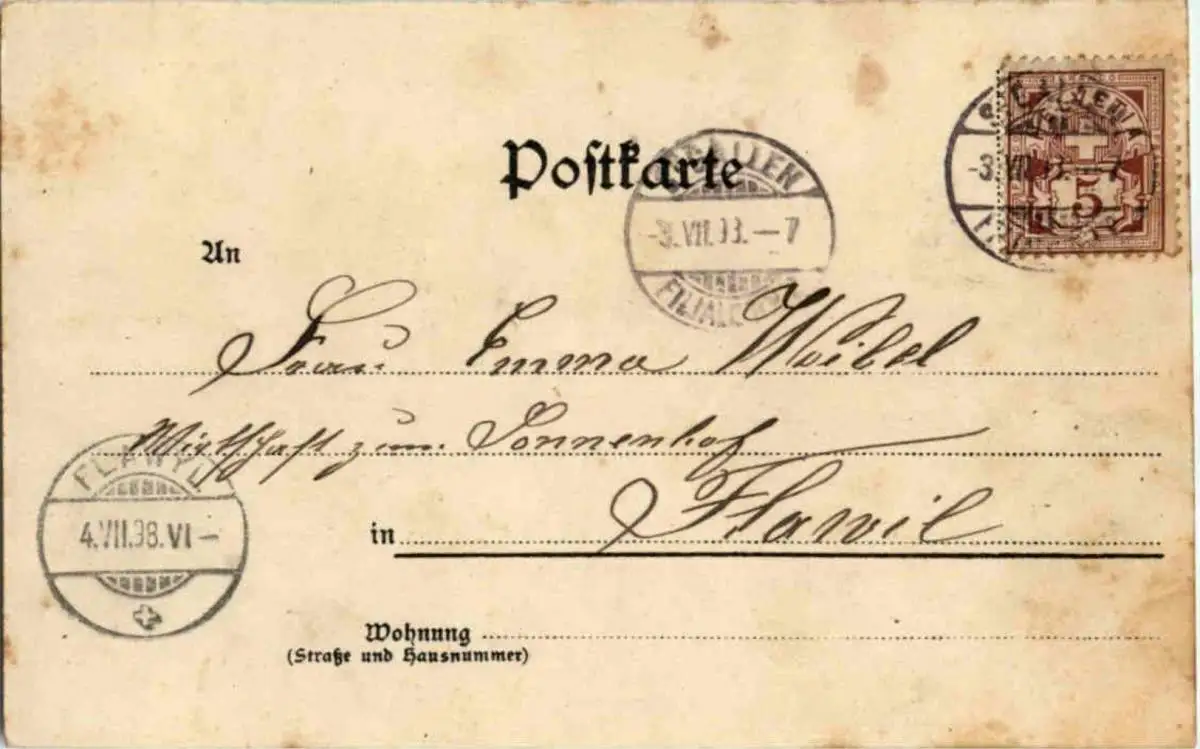 Postkarte
ST. GALLEN
-3.VII.98.-7
FILIALE
5
-3.VII.98.-7
An
Frau Emma Weibel
Wirthschaft zum Sonnenhof
in Flawil
FLAWYL
4.VII.98.VI-
Wohnung
(Straße und Hausnummer)